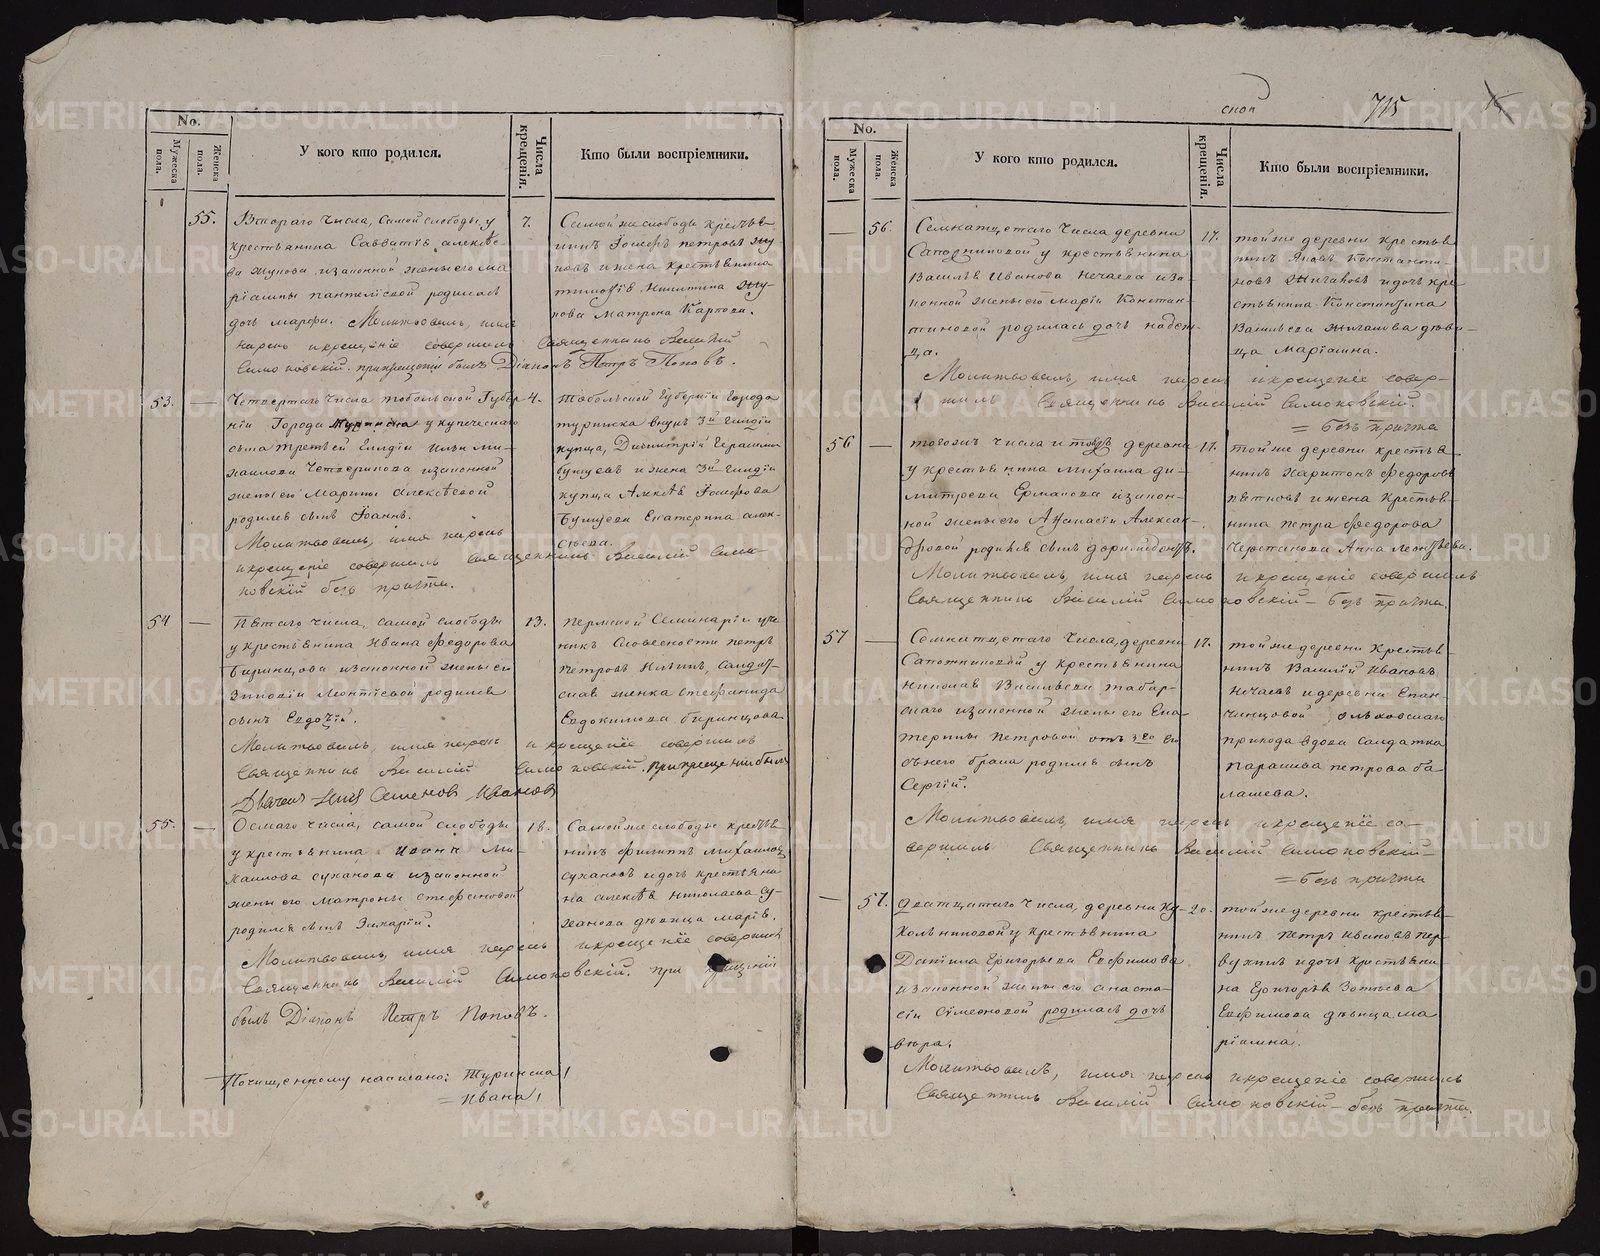 No.
Мужеска пола.
Женска пола.
У кого кто родился.
Числа крещенія.
Кто были воспріемники.
55.
Втораго числа, самой слободы у
крестьянина Савватія Алексѣе-
ва изаконной жены его Ма
ріамны Пантелѣевой родилась
дочь Марфа. Молитвовалъ, имя
нарекъ и крещеніе совершилъ Священникъ Василій
Симоновскій. при крещеніи былъ Діаконъ Петръ Поповъ.
7.
Самой же слободы крестья
нинъ Іосифъ Петровъ
и жена крестьянина
Никитина
Матрона Карпова.
53.
Четвертаго числа Тобольской Губер
ніи Города Туринска у купеческаго
сына третьей гилдіи Ильи Ми-
хаилова Чевтерикова изаконной
жены его Марины Алексѣевой
родился сынъ Іоаннъ.
Молитвовалъ, имя нарекъ
и крещеніе совершилъ Священникъ Василій Симо-
новскій безъ причта.
4.
Тобольской Губерніи Города
Туринска внукъ 3й гилдіи
купца, Димитрій Герасимов
и жена 3й гилдіи
купца Алексѣя Іосифова
Екатерина Алек-
сѣева.
54
Пятаго числа, самой слободы
у крестьянина Ивана Федорова
Биринцова изаконной жены его
Зиновіи Леонтіевой родился
сынъ Евдокій.
Молитвовалъ, имя нарекъ и крещеніе совершилъ
Священникъ Василій Симоновскій. при крещеніи былъ
Семенов Иванов
13.
Пермской Семинаріи уче
никъ Словесности Петръ
Петровъ, Салдат-
ская женка Стефанида
Евдокимова Биринцова
55.
Осмаго числа, самой слободы
у крестьянина Ивана Ми-
хаилова Суханова изаконной
жены его Матроны Стефановой
родился сынъ
Молитвовалъ, имя нарекъ и крещеніе совершилъ
Священникъ Василій Симоновскій. при крещеніи
былъ Діаконъ Петръ Поповъ.
18.
Самой же слободы крестья
нинъ Филиппъ Михайловъ
Сухановъ и дочь крестьяни
на Алексѣя Николаева Су-
ханова дѣвица Марія.
По чищенному написано: Туринска
= Ивана
715
No.
Мужеска пола.
Женска пола.
У кого кто родился.
Числа крещенія.
Кто были воспріемники.
56.
Семнатцетаго числа деревни
Сапожниковой у крестьянина
Василья Иванова Нечаева иза
конной жены его Маріи Констан-
тиновой родилась дочь Надеж-
да.
Молитвовалъ, имя нарекъ и крещеніе совер-
шилъ Священникъ Василій Симоновскій.
= безъ причта
17.
той же деревни крестья
нинъ Яковъ Константи-
новъ и дочь кре
стьянина Константина
Васильева дѣви-
ца Маріамна.
56
тогожъ числа и тойжъ деревни
у крестьянина Михаила Ди-
митріева Ермакова изакон-
ной жены его Афанасіи Алексан-
дровой родился сынъ Доримедонтъ.
Молитвовалъ, имя нарекъ и крещеніе совершилъ
Священникъ Василій Симоновскій – безъ причта.
17.
той же деревни крестья
нинъ Харитонъ Федоровъ
и жена крестья-
нина Петра Федорова
Анна Леонтьева.
57
Семнатцетаго числа, деревни
Сапожниковой у крестьянина
Николая Васильева Табар-
скаго изаконной жены его Ека
терины Петровой отъ 3го его
съ него брака родился сынъ
Сергій.
Молитвовалъ, имя нарекъ и крещеніе со-
вершилъ Священникъ Василій Симоновскій –
= безъ причта
17.
той же деревни крестья-
нинъ Василій Ивановъ
Нечаевъ и деревни Епан-
чинцовой
прихода вдова салдатка
Парасковa Петрова Ба
лашева.
57.
Дватцатаго числа, деревни Ку-
кольниковой у крестьянина
Даніила Григорьева Евфимова
изаконной жены его Анаста-
сіи Сімеоновой родилась дочь
Вѣра.
Молитвовалъ, имя нарекъ и крещеніе совершилъ
Священникъ Василій Симоновскій – безъ причта.
20.
той же деревни крестья-
нинъ Петръ Ивановъ Пер-
вухинъ и дочь крестьяни-
на Григорья Зотьева
Евфимова дѣвица Ма
ріамна.
METRIKI.GASO-URAL.RU